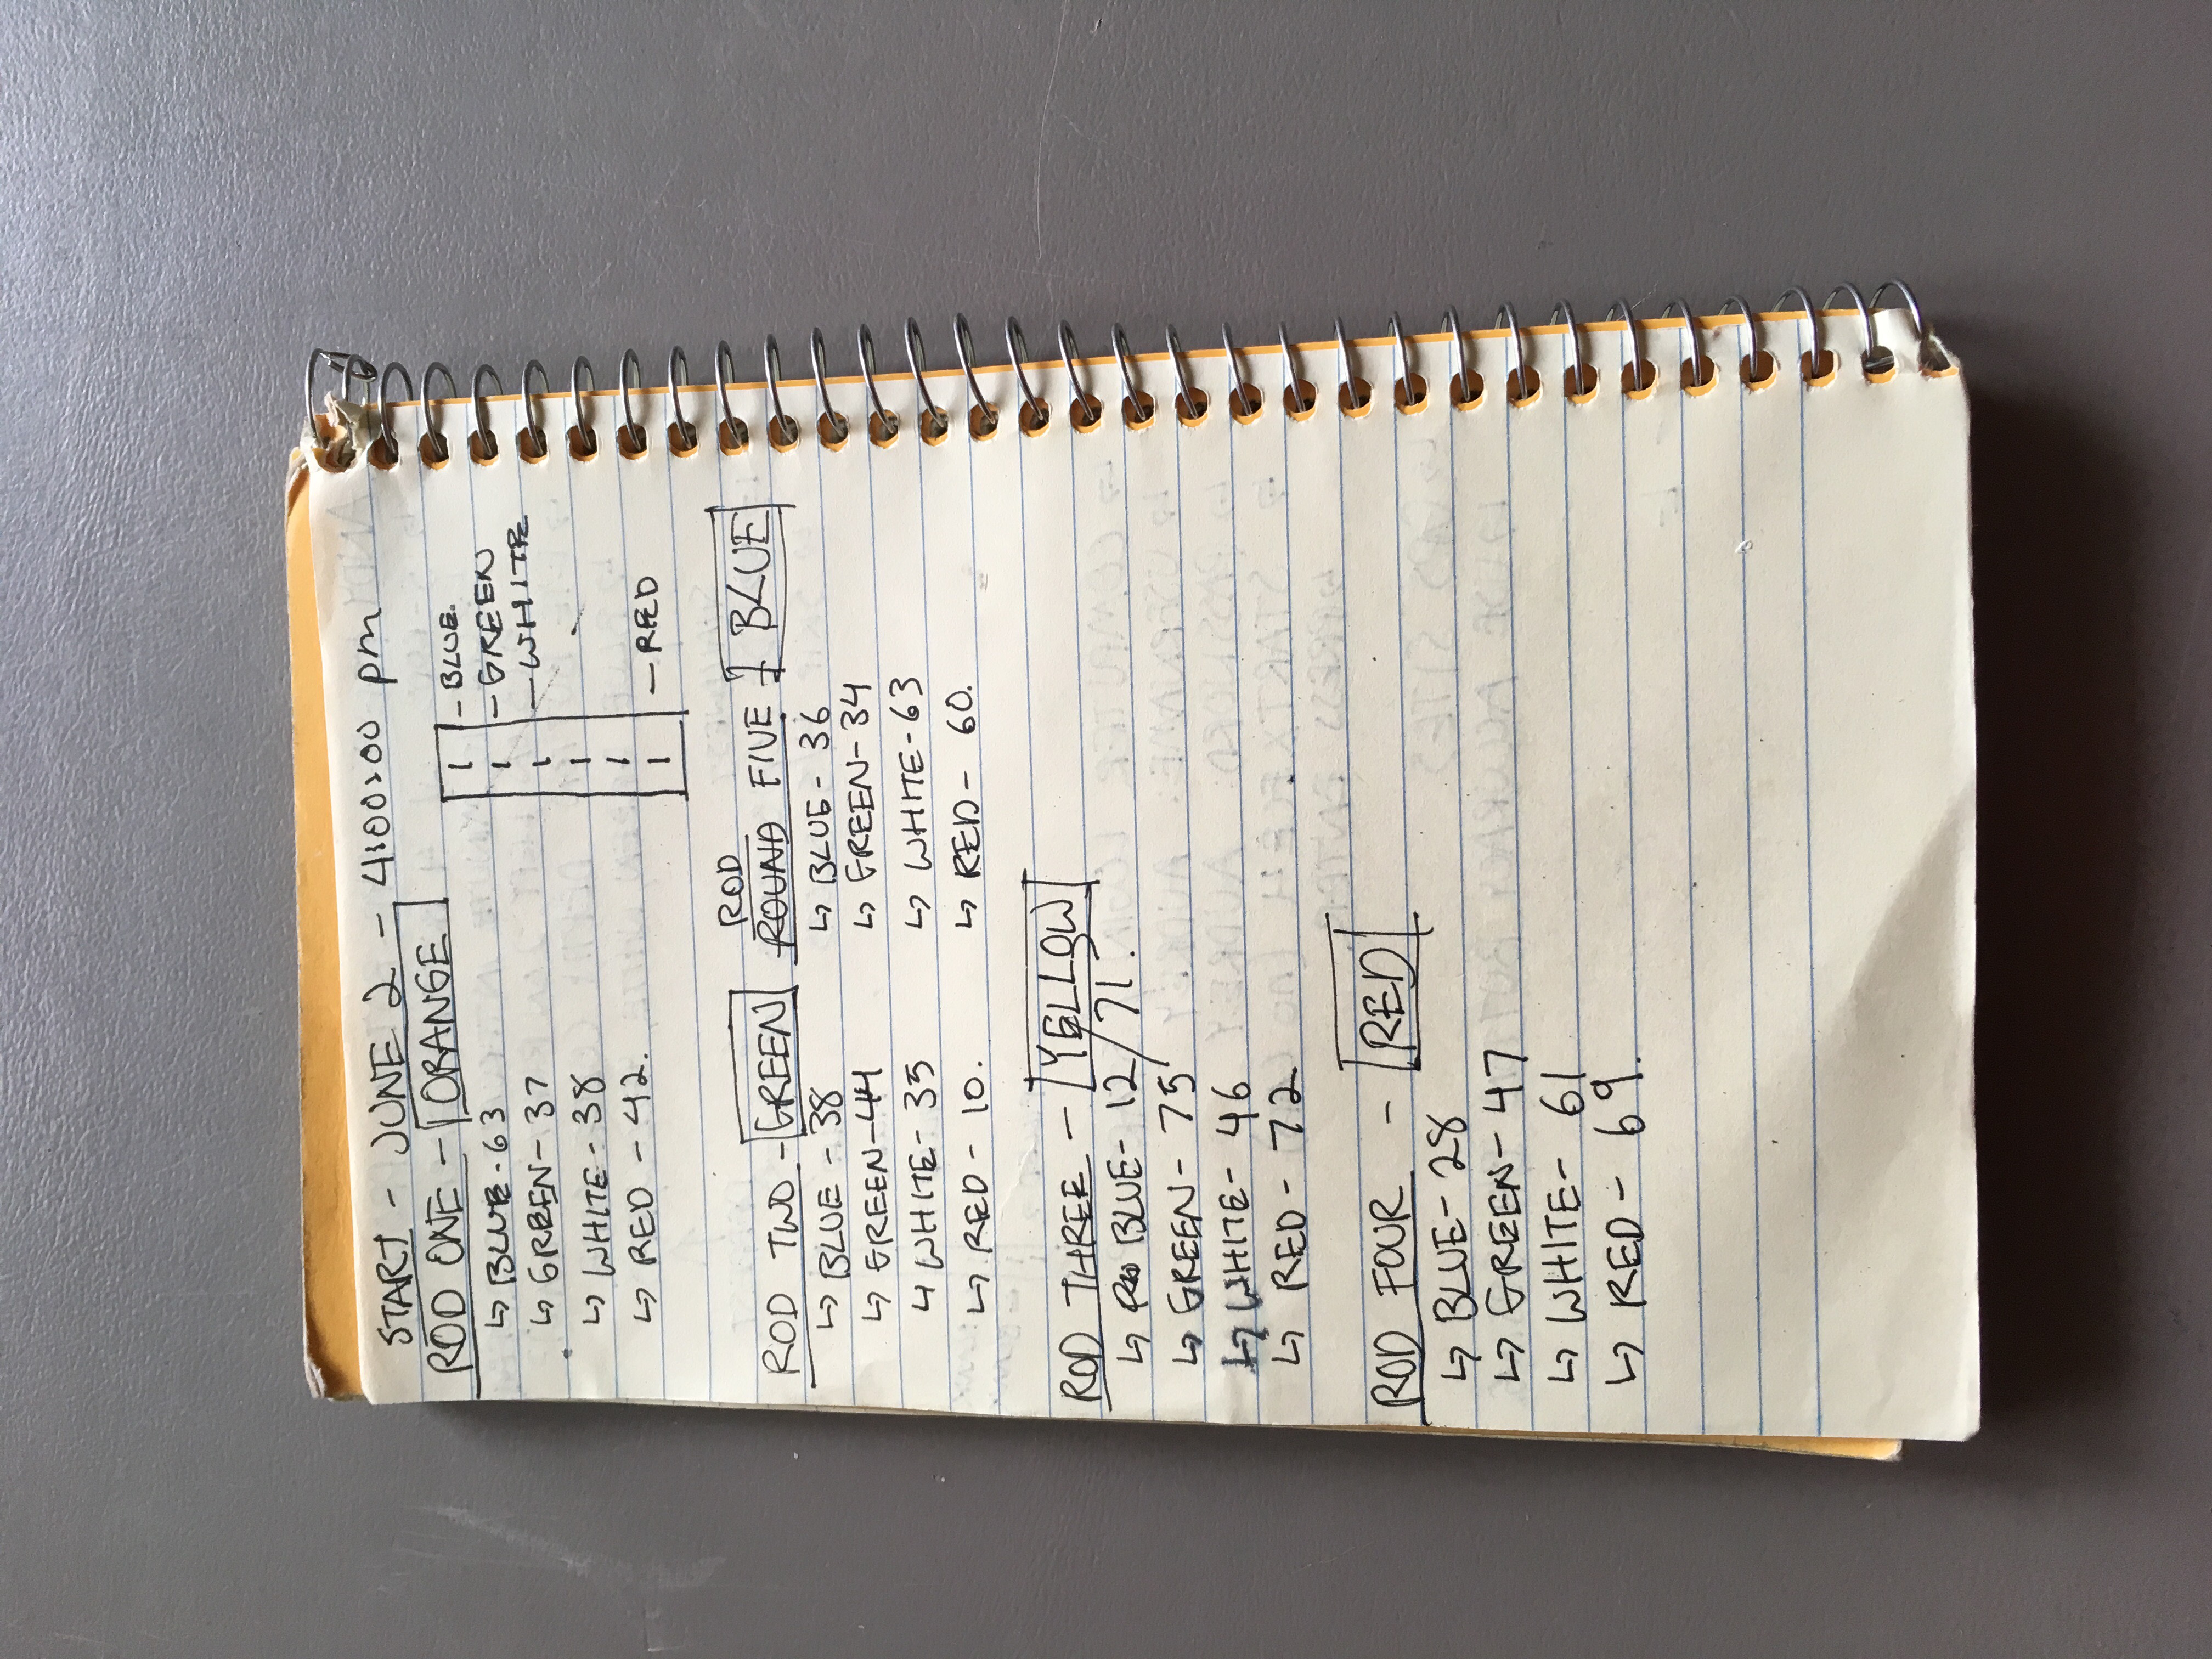 START - JUNE 2 - 4:00:00 pm
ROD ONE - ORANGE
↳ BLUE - 63
↳ GREEN - 37
↳ WHITE - 38
↳ RED - 42.
- BLUE.
- GREEN
- WHITE
- RED
ROD TWO - GREEN
↳ BLUE - 38
↳ GREEN - 44
↳ WHITE - 35
↳ RED - 10.
ROD
ROUND FIVE - BLUE
↳ BLUE - 36
↳ GREEN - 34
↳ WHITE - 63
↳ RED - 60.
ROD THREE - YELLOW
↳ BLUE - 12 / 71.
↳ GREEN - 75
↳ WHITE - 46
↳ RED - 72
ROD FOUR - RED
↳ BLUE - 28
↳ GREEN - 47
↳ WHITE - 61
↳ RED - 69.